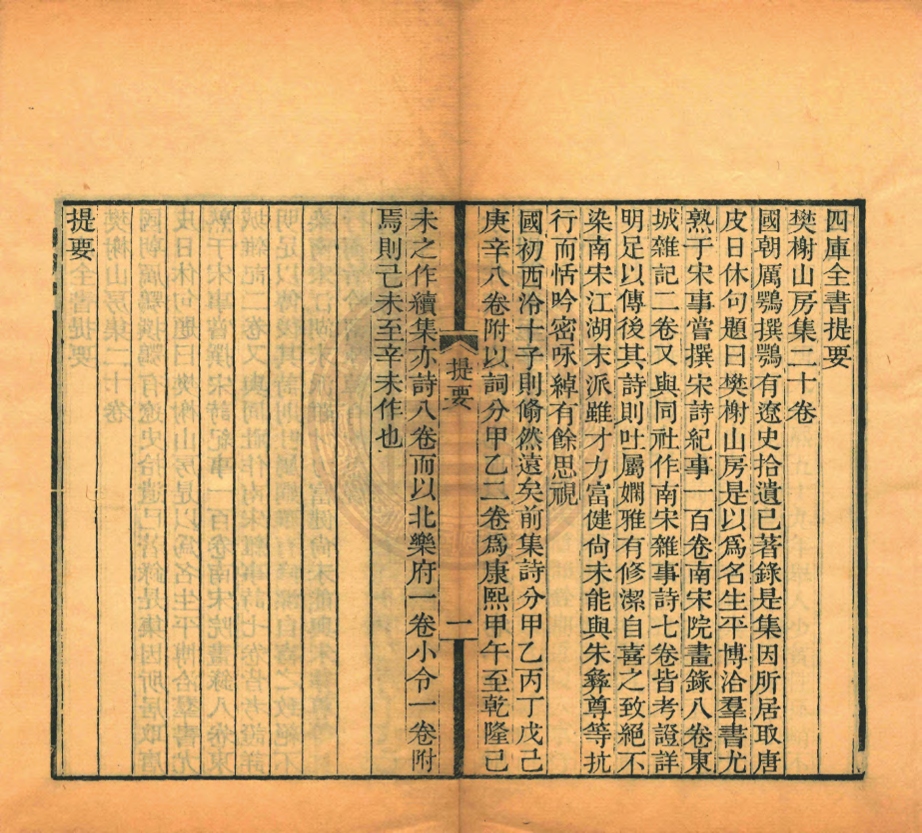 四庫全書提要
樊榭山房集二十卷
國朝厲鶚撰鶚有遼史拾遺已著錄是集因所居取唐
皮日休句題曰樊榭山房是以爲名生平博洽羣書尤
熟于宋事嘗撰宋詩紀事一百卷南宋院畫錄八卷東
城雜記二卷又與同社作南宋雜事詩七卷皆考證詳
明足以傳後其詩則吐屬嫻雅有修潔自喜之致絕不
染南宋江湖末派雖才力富健尙未能與朱彝尊等抗
行而恬吟密咏綽有餘思視
國初西泠十子則翛然遠矣前集詩分甲乙丙丁戊己
庚辛八卷附以詞分甲乙二卷爲康熙甲午至乾隆己
提要
一
未之作續集亦詩八卷而以北樂府一卷小令一卷附
焉則己未至辛未作也
提要